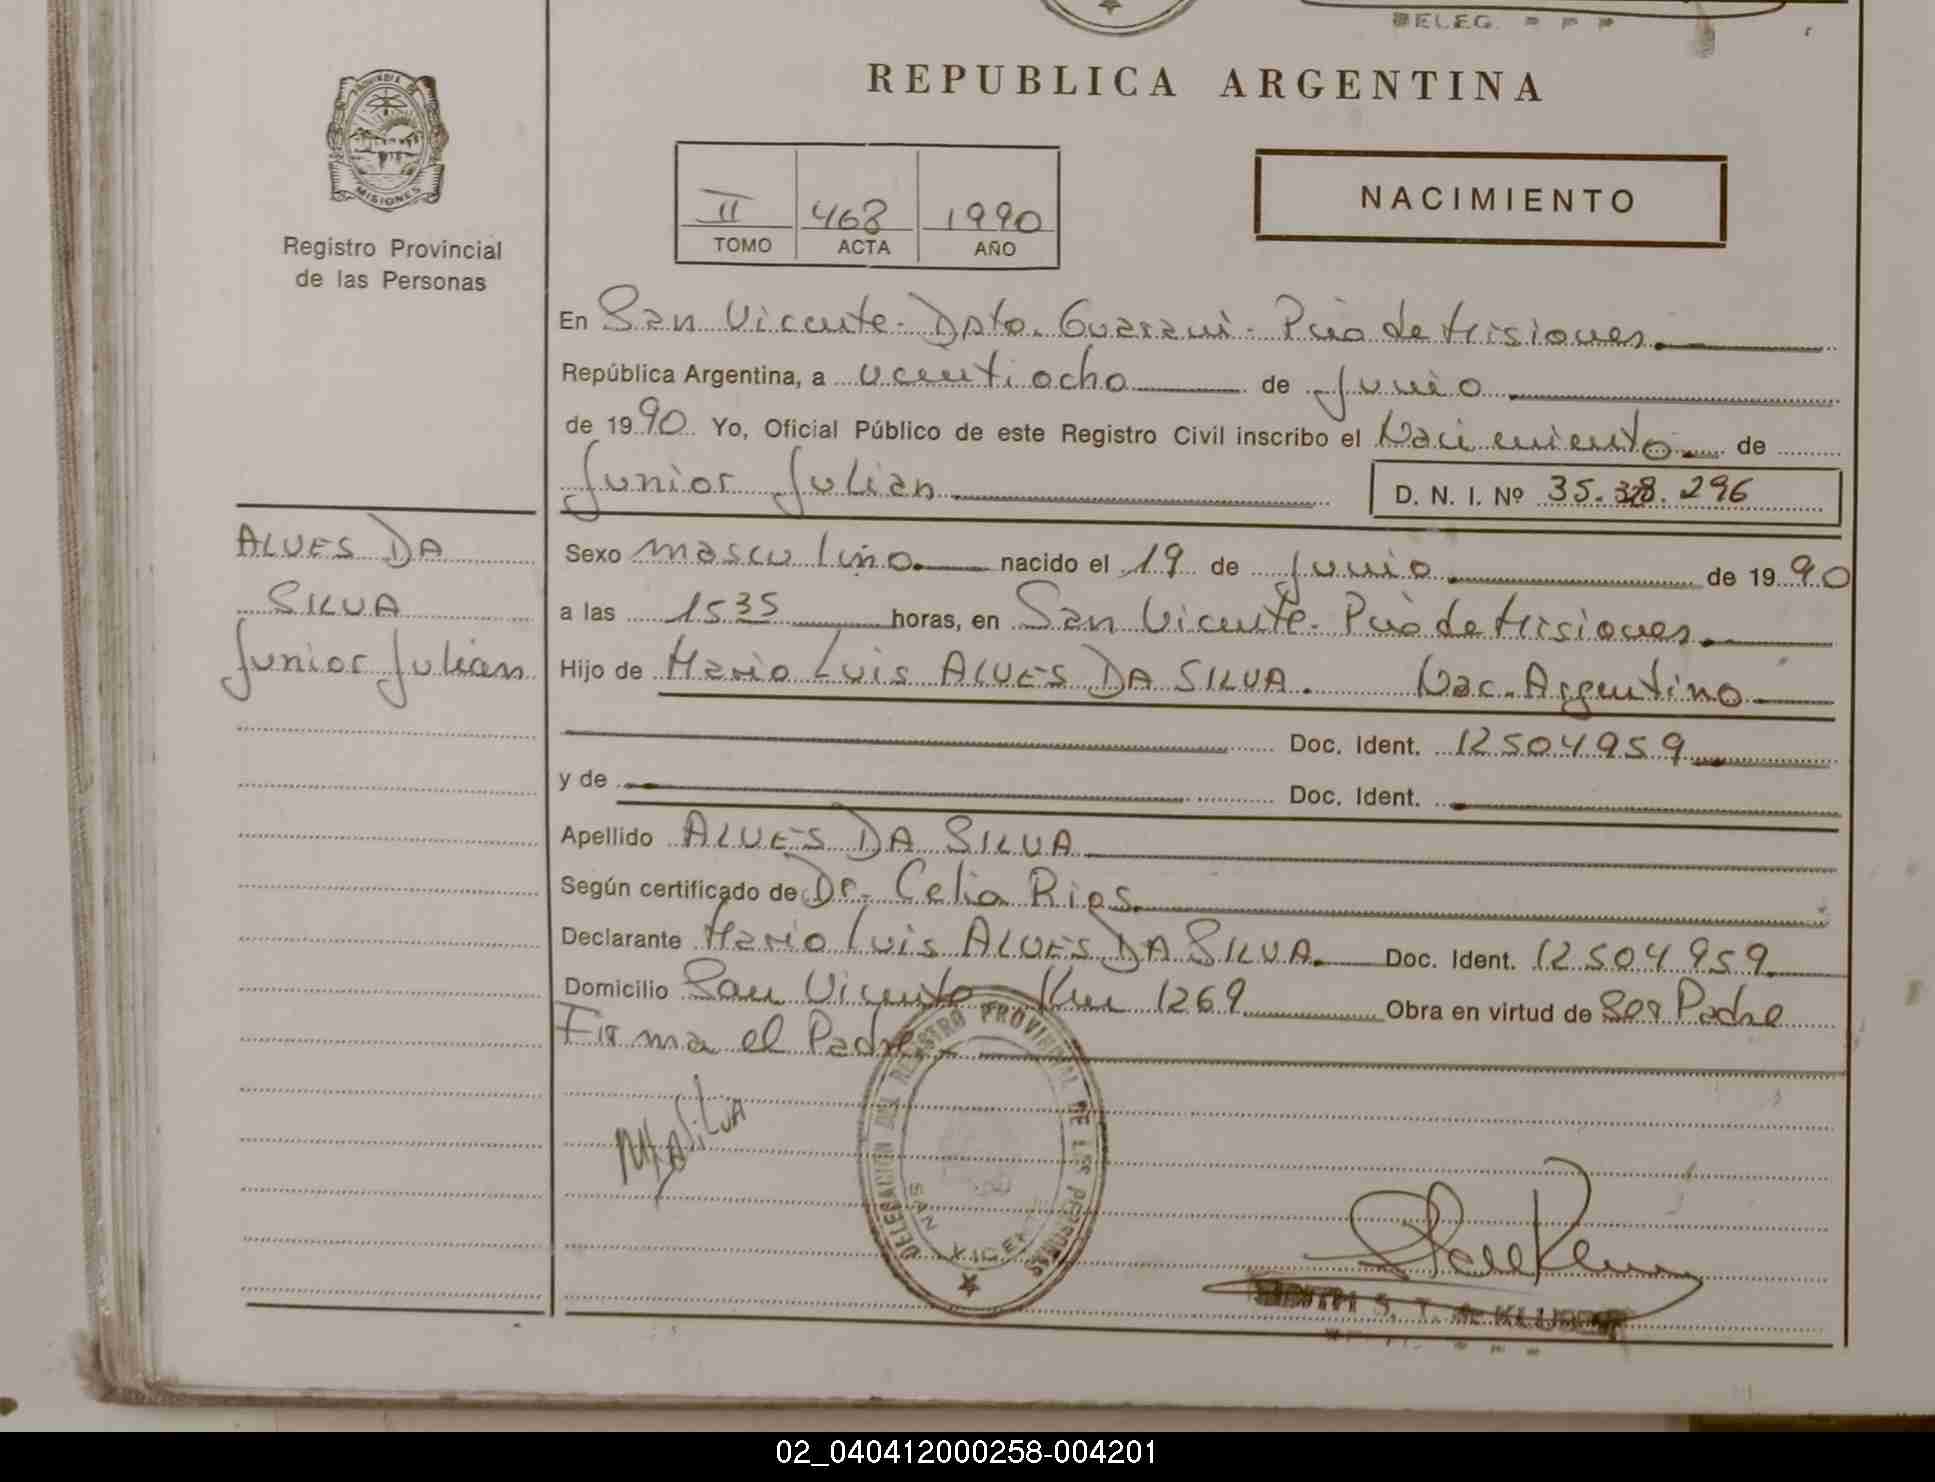 DELEG.
REPUBLICA ARGENTINA
PROVINCIA
MISIONES
Registro Provincial
de las Personas
II 468 1990
TOMO ACTA AÑO
NACIMIENTO
En San Vicente. Dpto. Guarani. Pcia de Misiones.
República Argentina, a veintiocho de Junio
de 1990 Yo, Oficial Público de este Registro Civil inscribo el Nacimiento de
Junior Julian
D. N. I. Nº 35. 296
ALVES DA
SILVA
Junior Julian
Sexo masculino. nacido el 19 de Junio de 1990
a las 15 35 horas, en San Vicente. Pcia de Misiones.
Hijo de Mario Luis ALVES DA SILVA. Nac. Argentino
Doc. Ident. 12504959
y de Doc. Ident.
Apellido ALVES DA SILVA
Según certificado de Dr. Celia Rios.
Declarante Mario Luis ALVES DA SILVA. Doc. Ident. 12504959
Domicilio San Vicente Km 1269 Obra en virtud de Ser Padre
Firma el Padre.
DELEGACION DEL REGISTRO PROVINCIAL DE LAS PERSONAS
SAN VICENTE
02_040412000258-004201